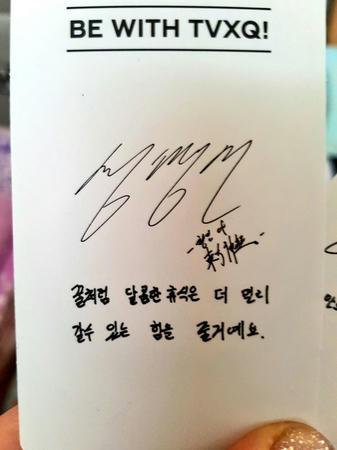 BE WITH TVXQ!
꿀처럼 달콤한 휴식은 더 멀리
갈수 있는 힘을 줄거예요.